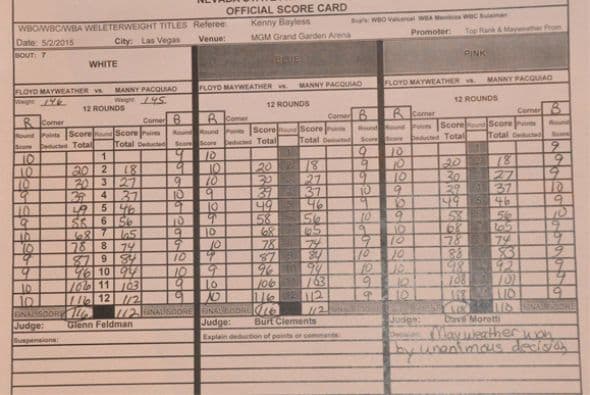 OFFICIAL SCORE CARD
WBO/WBC/WBA WELETERWEIGHT TITLES Referee: Kenny Bayless
Date: 5/2/2015 City: Las Vegas Venue: MGM Grand Garden Arena Promoter: Top Rank & Mayweather Prom.
BOUT: 7
WHITE BLUE PINK
FLOYD MAYWEATHER vs. MANNY PACQUIAO FLOYD MAYWEATHER vs. MANNY PACQUIAO FLOYD MAYWEATHER vs. MANNY PACQUIAO
Weight: 146 Weight: 145
12 ROUNDS 12 ROUNDS 12 ROUNDS
R Corner Corner B R Corner Corner B R Corner Corner B
Round Points Score Round Score Points Round Round Points Score Round Score Points Round Round Points Score Round Score Points Round
Score Deducted Total Total Deducted Score Score Deducted Total Total Deducted Score Score Deducted Total Total Deducted Score
10 1 9 10 10 9
10 20 2 18 9 10 20 18 9 10 20 18 9
10 30 3 27 9 10 30 27 9 10 30 27 9
9 39 4 37 10 9 39 37 10 9 39 37 10
10 49 5 46 9 10 49 46 9 10 49 46 9
9 58 6 56 10 9 58 56 10 9 58 56 10
10 68 7 65 9 10 68 65 9 10 68 65 9
10 78 8 74 9 10 78 74 9 10 78 74 9
9 87 9 84 10 9 87 84 10 10 88 83 9
9 96 10 94 10 9 96 94 10 10 98 92 9
10 106 11 103 9 10 106 103 9 10 108 101 9
10 116 12 112 9 10 116 112 9 10 118 110 9
FINAL SCORE 116 112 FINAL SCORE FINAL SCORE 116 112 FINAL SCORE 118 110
Judge: Glenn Feldman Judge: Burt Clements Judge: Dave Moretti
Suspensions: Explain deduction of points or comments: Decision: Mayweather won
by unanimous decision